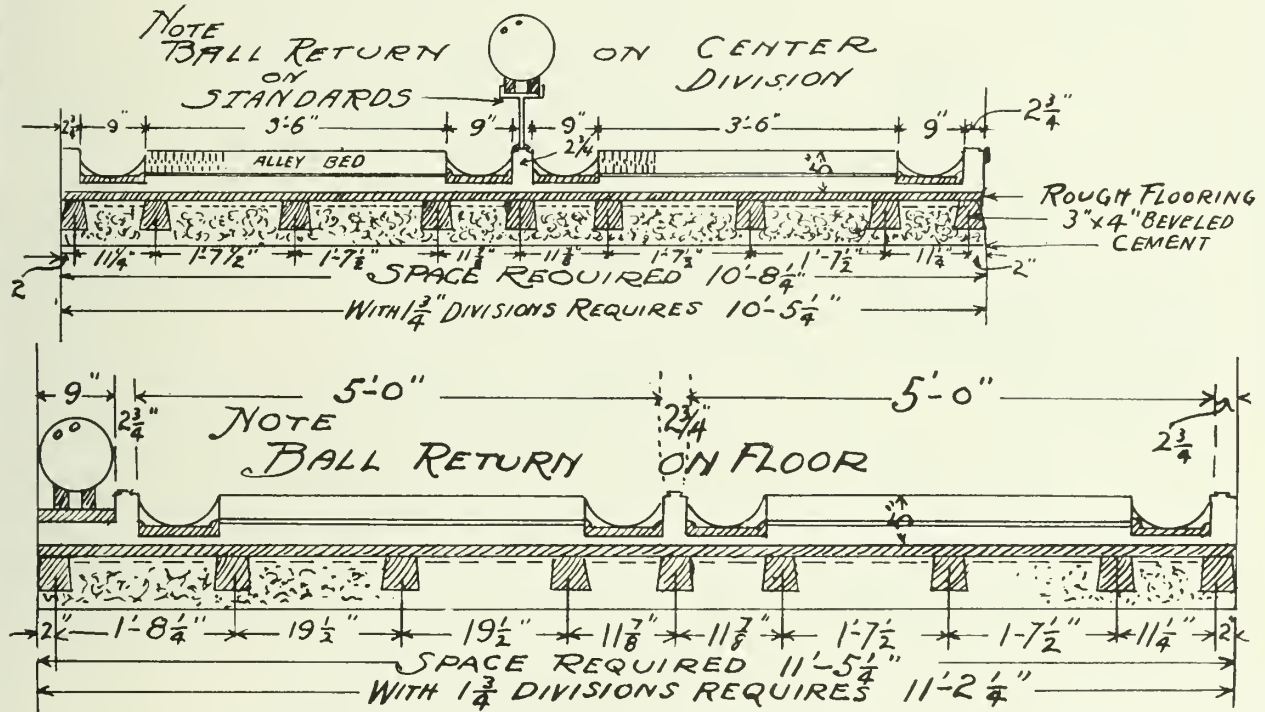 NOTE
BALL RETURN ON CENTER
ON DIVISION
STANDARDS
2¾" 9" 3'-6" 9" 9" 3'-6" 9" 2¾"
2¾
ALLEY BED 5"
ROUGH FLOORING
3"x4" BEVELED
CEMENT
2 11¼" 1'-7½" 1'-7½" 11⅞" 11⅞" 1'-7½" 1'-7½" 11¼" 2"
SPACE REQUIRED 10'-8¼"
WITH 1¾" DIVISIONS REQUIRES 10'-5¼"
9" 2¾" 5'-0" 2¾" 5'-0" 2¾
NOTE
BALL RETURN ON FLOOR
5"
2" 1'-8¼" 19½" 19½" 11⅞" 11⅞" 1'-7½ 1-7½" 11¼" 2"
SPACE REQUIRED 11'-5¼"
WITH 1¾ DIVISIONS REQUIRES 11'-2¼"